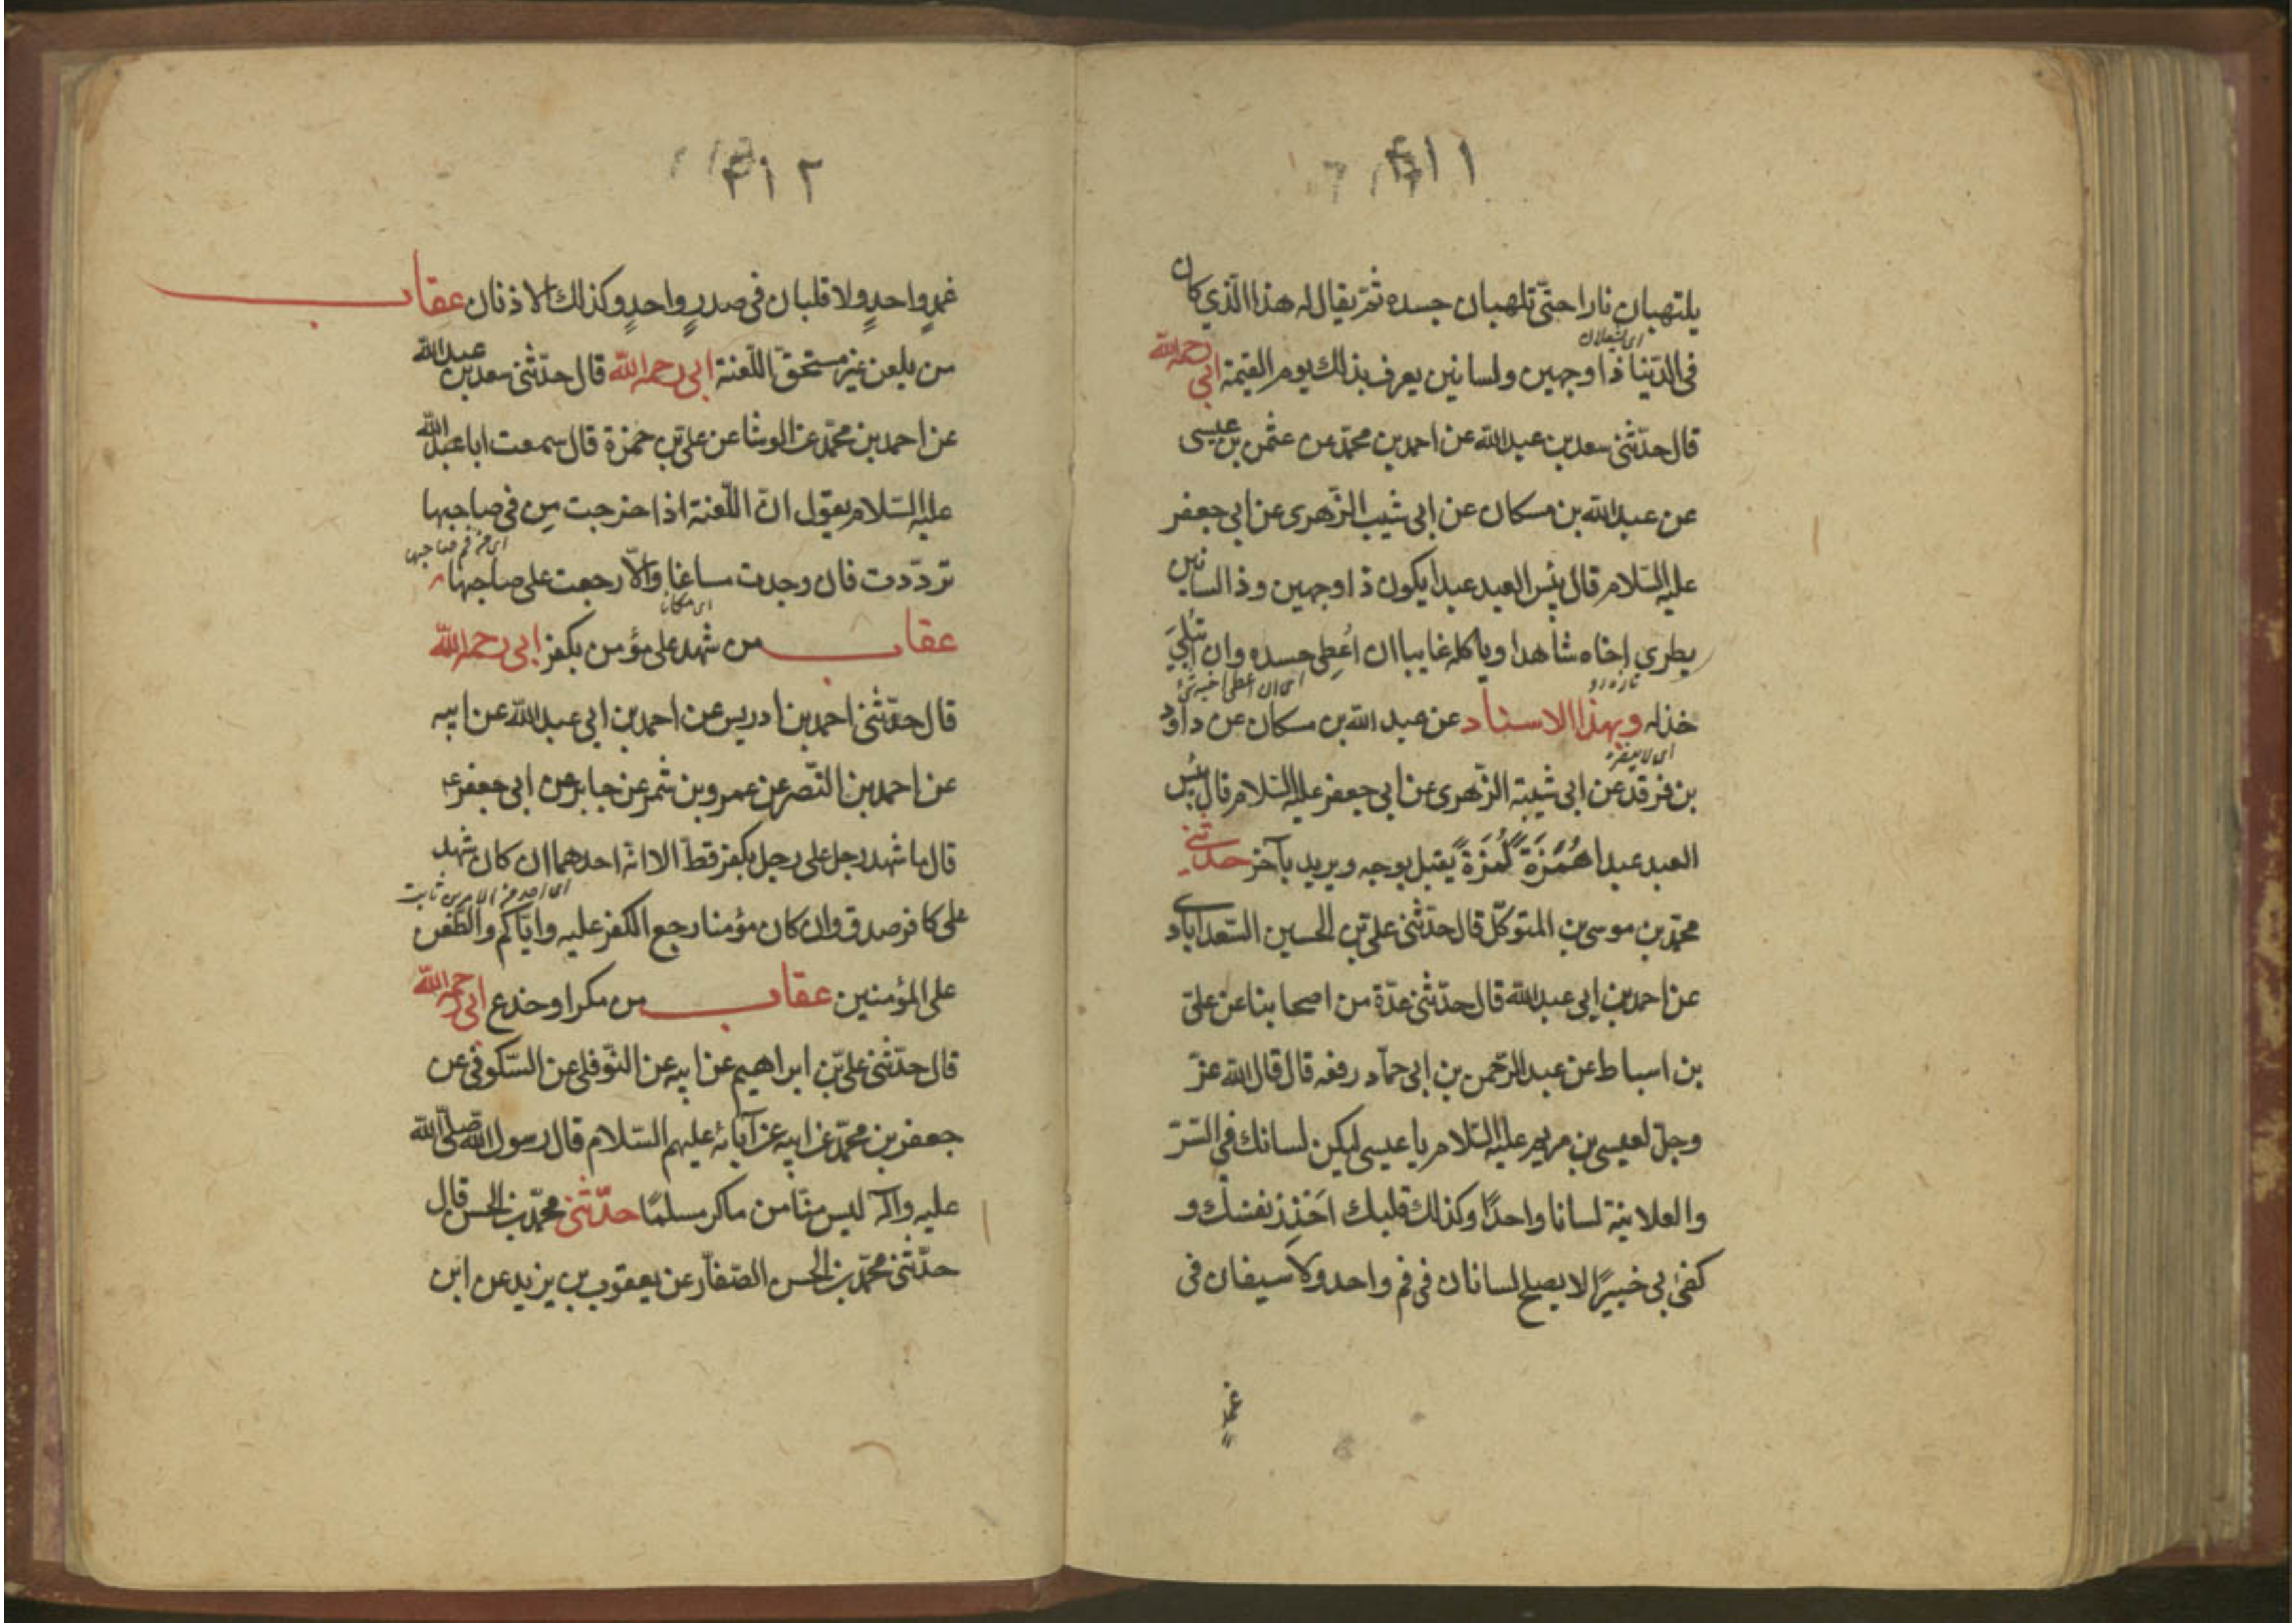 ٤١١
يلتهبان نارا حتّى تلهبان جسده ثمّ يقال له هذا الّذي كان
اى يشعلان
فى الدّنيا ذا وجهين ولسانين يعرف بذلك يوم القيمة ابي رحمه الله
قال حدّثنى سعد بن عبد الله عن احمد بن محمّد عن عثمن بن عيسى
عن عبد الله بن مسكان عن ابى شيبه الزّهرى عن ابى جعفر
عليه السّلام قال بئس العبد عبدا يكون ذا وجهين وذا لسانين
يطري اخاه شاهدا وياكله غايبا ان اُعطِى حسده وان ابتُلِيَ
اى ان اعطى اخيه شئ
خذله وبهذا الاسناد عن عبد الله بن مسكان عن داود
اى لا ينصره
بن فرقد عن ابى شيبة الزّهرى عن ابى جعفر عليه السّلام قال بئس
العبد عبدا هُمَزَةً لُمَزَةً يقبل بوجه ويريد بآخر حدّثنى
محمّد بن موسى بن المتوكّل قال حدّثنى علىّ بن الحسين السّعدابادى
عن احمد بن ابى عبد الله قال حدّثنى عدّة من اصحابنا عن علىّ
بن اسباط عن عبد الرّحمن بن ابى حمّاد رفعه قال قال الله عزّ
وجلّ لعيسى بن مريم عليه السّلام يا عيسى ليكن لسانك فى السّرّ
والعلانية لسانا واحدًا وكذلك قلبك احَذِّر نفسَك و
كفىٰ بى خبيرًا لا يصلح لسانان فى فم واحد ولا سيفان فى
غمدٍ
٤١٢
غمدٍ واحدٍ ولا قلبان فى صدرٍ واحدٍ وكذلك الاذنان عقاب
من يلعن غير مستحقّ اللّعنة ابى رحمه الله قال حدّثنى سعد بن عبد الله
عن احمد بن محمّد عن الوشا عن علىّ بن حمزة قال سمعت ابا عبد الله
عليه السّلام يقول انّ اللّعنة اذا خرجت مِن فى صاحبها
اى من فم صاحبها
تردّدت فان وجدت مساغا والّا رجعت على صاحبها
اى مكانا
عقاب من شهد على مؤمن بكفر ابى رحمه الله
قال حدّثنى احمد بن ادريس عن احمد بن ابى عبد الله عن ابيه
عن احمد بن النّصر عن عمرو بن شمر عن جابر عن ابى جعفر ع
قال ما شهد رجل على رجل بكفر قطّ الا انّه احدهما ان كان شهد
اى احد من الامرين ثابت
على كافر صدق وان كان مؤمنا رجع الكفر عليه وايّاكم والطّعن
على المؤمنين عقاب من مكر او خدع ابى رحمه الله
قال حدّثنى علىّ بن ابراهيم عن ابيه عن النّوفلى عن السّكونى عن
جعفر بن محمّد عن ابيه عن آبائه عليهم السّلام قال رسول الله صلّى الله
عليه وآله ليس منّا من ماكر مسلمًا حدّثنى محمّد بن الحسن قال
حدّثنى محمّد بن الحسن الصّفّار عن يعقوب بن يزيد عن ابن